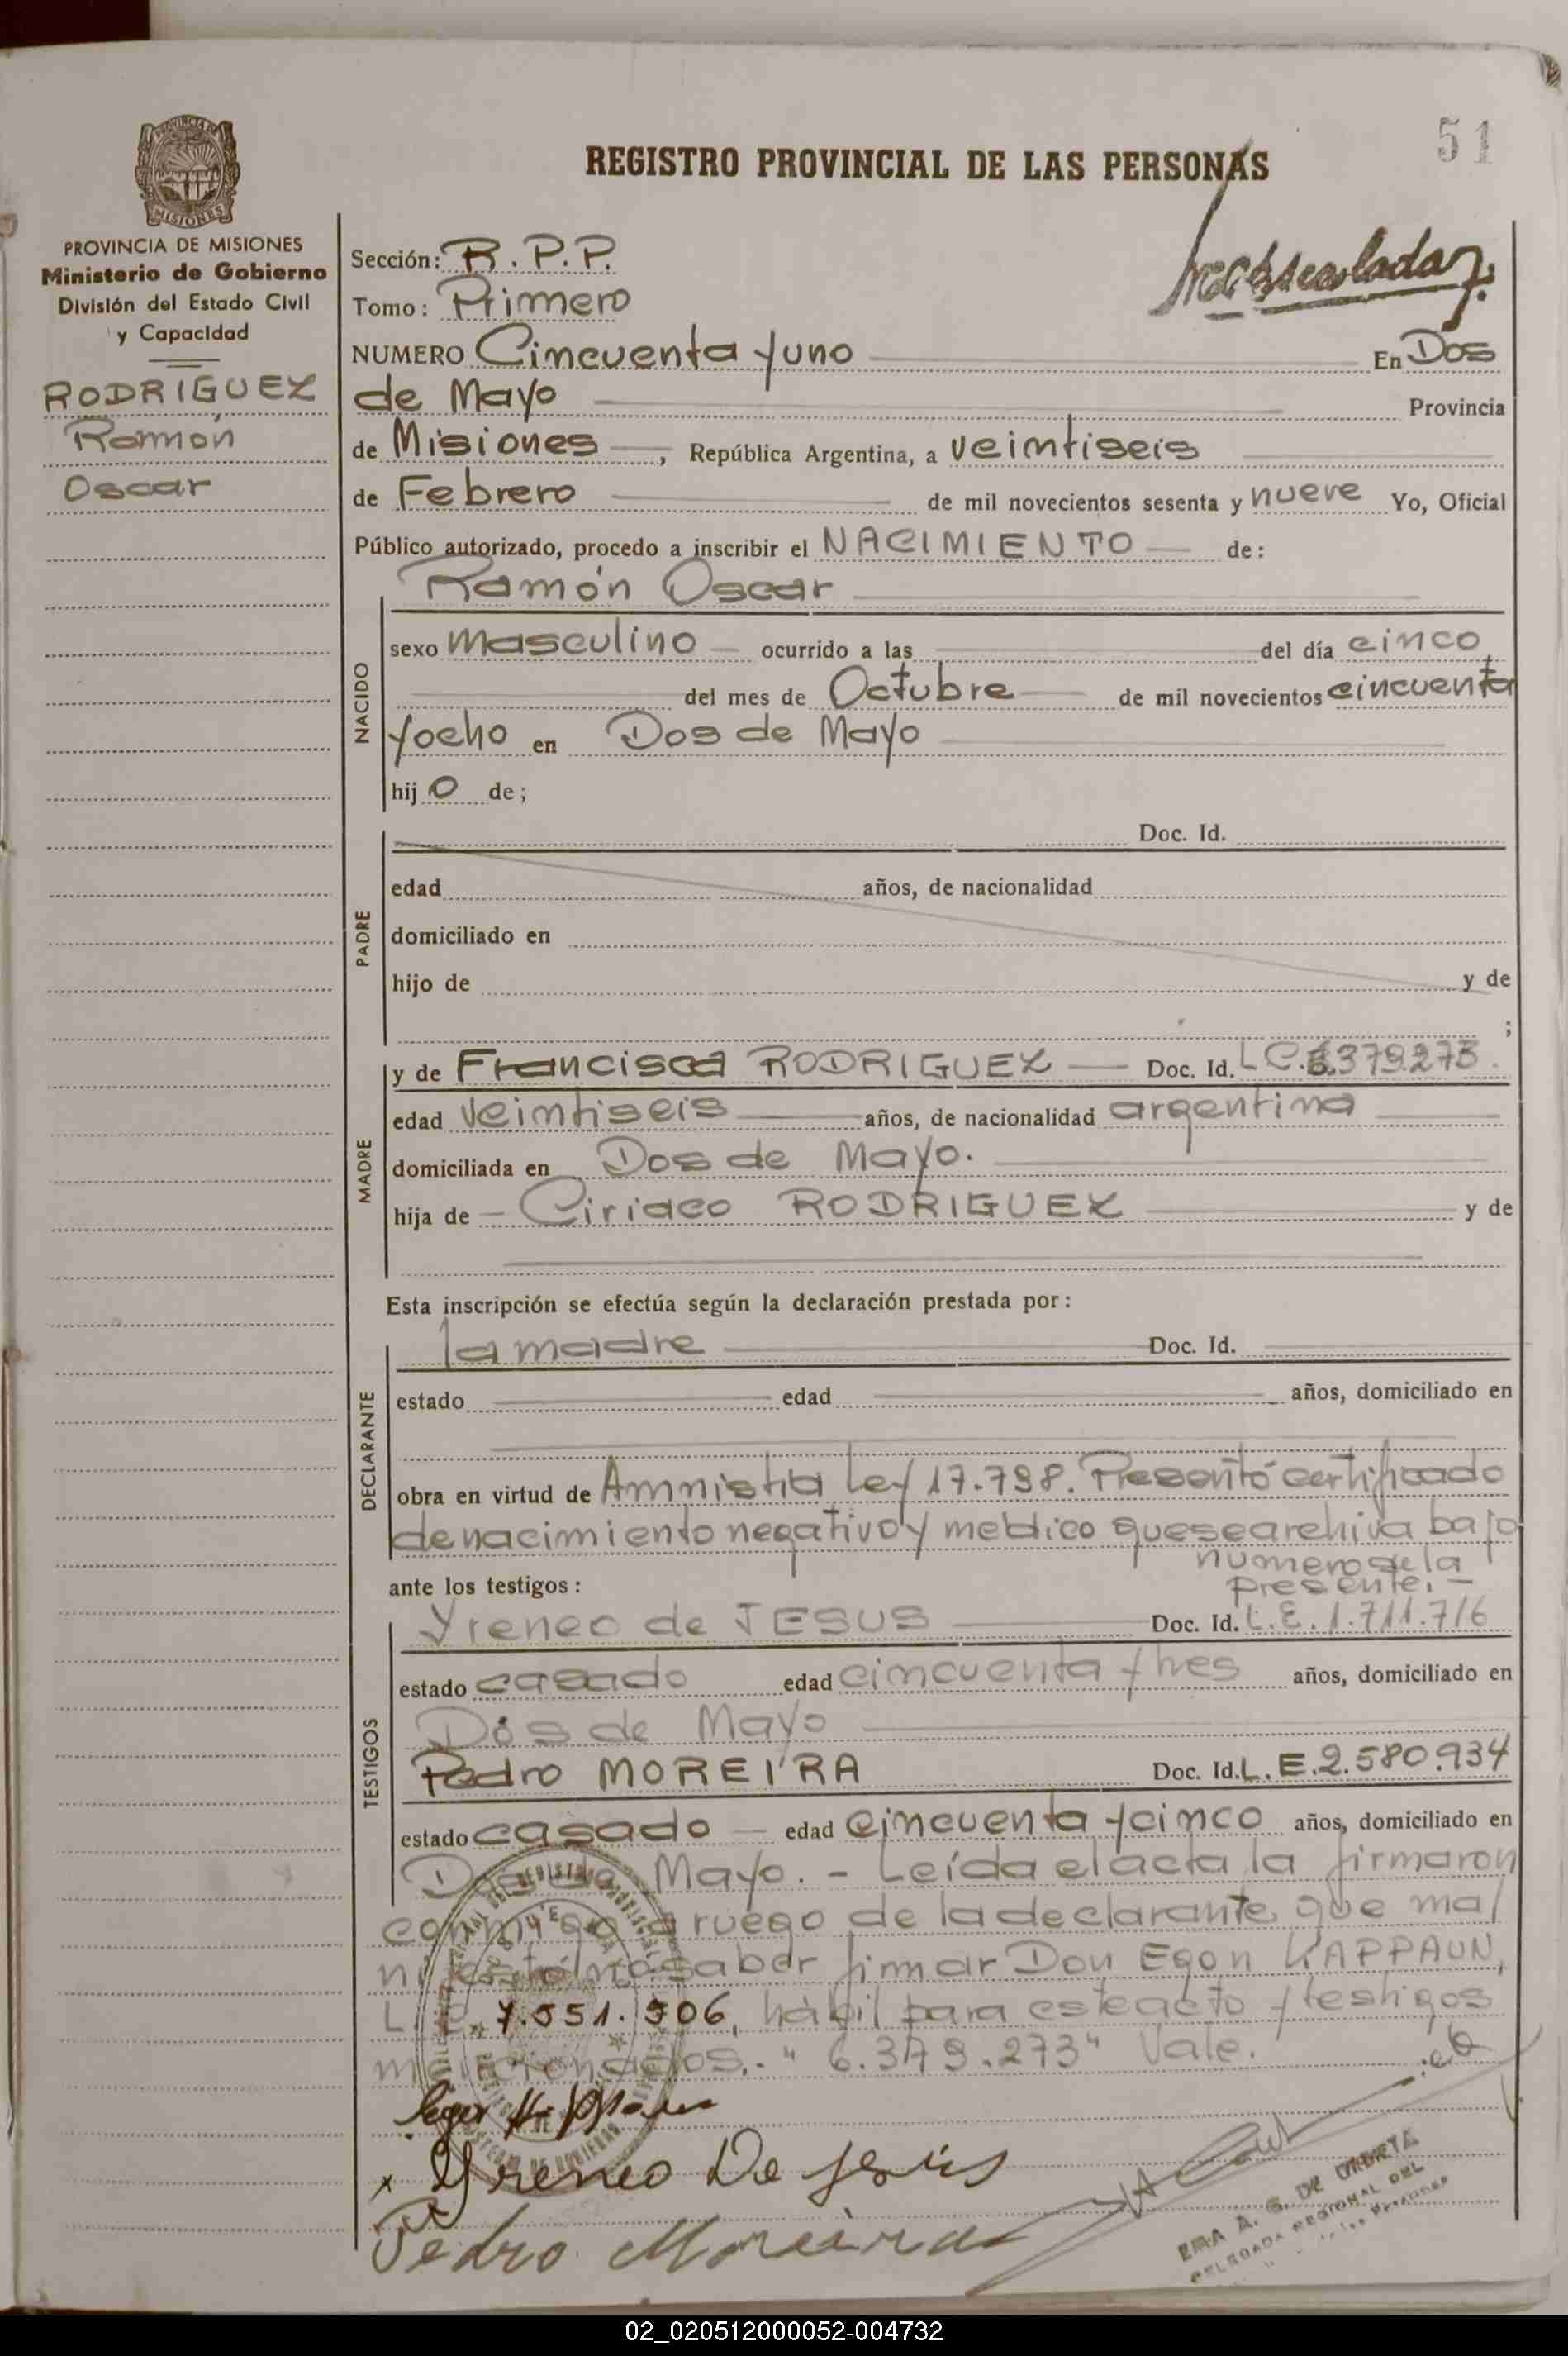 51
REGISTRO PROVINCIAL DE LAS PERSONAS
PROVINCIA DE MISIONES
Ministerio de Gobierno
División del Estado Civil
y Capacidad
RODRIGUEZ
Ramón
Oscar
Sección: R.P.P.
Tomo: Primero
NUMERO Cincuenta y uno En Dos
de Mayo Provincia
de Misiones, República Argentina, a veintiseis
de Febrero de mil novecientos sesenta y nueve Yo, Oficial
Público autorizado, procedo a inscribir el NACIMIENTO de:
NACIDO
Ramón Oscar
sexo masculino ocurrido a las del día cinco
del mes de Octubre de mil novecientos cincuenta
y ocho en Dos de Mayo
hij o de;
PADRE
Doc. Id.
edad años, de nacionalidad
domiciliado en
hijo de y de
;
MADRE
y de Francisca RODRIGUEZ Doc. Id. L.C. 6.379.273.
edad veintiseis años, de nacionalidad argentina
domiciliada en Dos de Mayo.
hija de - Ciriaco RODRIGUEZ y de
Esta inscripción se efectúa según la declaración prestada por:
DECLARANTE
la madre Doc. Id.
estado edad años, domiciliado en
obra en virtud de Amnistia Ley 17.798. Presentó certificado
de nacimiento negativo y medico que se archiva bajo
numero de la
presente.-
ante los testigos:
TESTIGOS
Yreneo de JESUS Doc. Id. L.E. 1.711.716
estado casado edad cincuenta y tres años, domiciliado en
Dos de Mayo
Pedro MOREIRA Doc. Id. L.E. 2.580.934
estado casado edad cincuenta y cinco años, domiciliado en
Dos de Mayo.- Leída el acta la firmaron
conmigo a ruego de la declarante que mal
nifestó no saber firmar Don Egon KAPPAUN,
L.E. 7.551.506, hábil para este acto y testigos
mencionados.- "6.379.273" Vale.
Yreneo De Jesús
Pedro Moreira
EMA A. G. DE URRETA
DELEGADA REGIONAL DEL
02_020512000052-004732